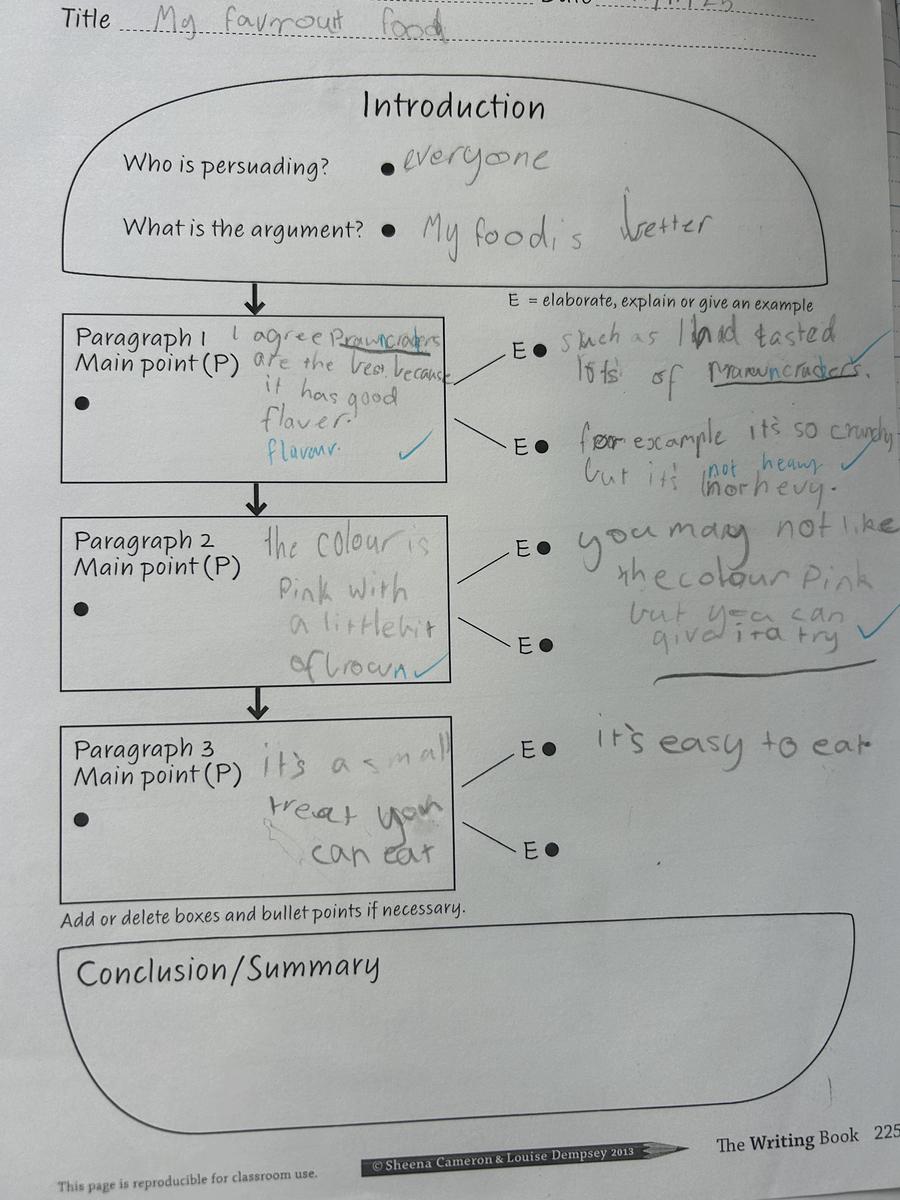 Title My favrout food
Introduction
Who is persuading? • everyone
What is the argument? • My food is better
E = elaborate, explain or give an example
Paragraph 1 I agree Prawncraders
Main point (P) are the best. because
it has good
flaver.
flavour. ✓
E • such as I had tasted
lots of prawncraders. ✓
E • for example it's so crunchy
not heavy ✓
but it's norhevy.
Paragraph 2 the colour is
Main point (P) Pink with
a little bit
of brown ✓
E • you may not like
the colour Pink
E • but you can
give it a try ✓
Paragraph 3 it's a small
Main point (P) treat you
can eat
E • it's easy to eat
E •
Add or delete boxes and bullet points if necessary.
Conclusion/Summary
This page is reproducible for classroom use.
© Sheena Cameron & Louise Dempsey 2013
The Writing Book 225